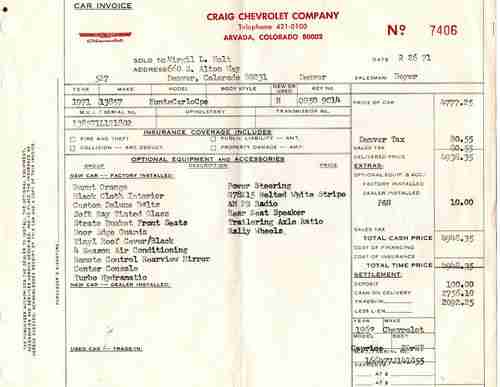 CAR INVOICE
CRAIG CHEVROLET COMPANY
Telephone 421-0100
ARVADA, COLORADO 80002
No 7406
SOLD TO Virgil L. Holt
DATE 2 26 71
ADDRESS 660 S. Alton Way
527 Denver, Colorado 80231 Denver
SALESMAN Boyer
YEAR MAKE MODEL BODY STYLE NEW OR USED KEY NO.
1971 13857 MonteCarloCpe N
PRICE OF CAR 4777.25
UPHOLSTERY TRANSMISSION NO.
INSURANCE COVERAGE INCLUDES
FIRE AND THEFT PUBLIC LIABILITY — AMT.
COLLISION — AMT. DEDUCT. PROPERTY DAMAGE — AMT.
Denver Tax 80.55
SALES TAX 80.55
DELIVERED PRICE 4938.35
OPTIONAL EQUIPMENT AND ACCESSORIES
GROUP DESCRIPTION PRICE
EXTRAS:
OPTIONAL EQUIP. & ACC:
NEW CAR — FACTORY INSTALLED:
FACTORY INSTALLED
Burnt Orange Power Steering
DEALER INSTALLED
Black Cloth Interior G78X15 Belted White Stripe
P&H 10.00
Custom Deluxe Belts AM FM Radio
Soft Ray Tinted Glass Rear Seat Speaker
Strato Bucket Front Seats Trailering Axle Ratio
Door Edge Guards Rally Wheels
SALES TAX
Vinyl Roof Cover/Black
TOTAL CASH PRICE 4948.35
4 Season Air Conditioning
COST OF FINANCING
Remote Control Rearview Mirror
COST OF INSURANCE
Center Console
TOTAL TIME PRICE 4948.35
Turbo Hydramatic
SETTLEMENT:
NEW CAR — DEALER INSTALLED:
DEPOSIT 100.00
CASH ON DELIVERY 2756.10
TRADE-IN 2092.25
LESS LIEN
YEAR MAKE
1969 Chevrolet
MODEL BODY
Caprice
USED CAR — TRADE-IN:
PAYMENTS
AT $
AT $
PURCHASER'S SIGNATURE